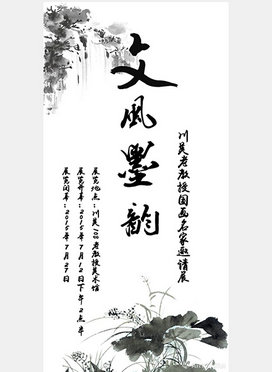 文风墨韵
川美老教授国画名家邀请展
展览地点：川美108老教授美术馆
展览开幕：2015年7月12日下午2点半
展览闭幕：2015年7月27日